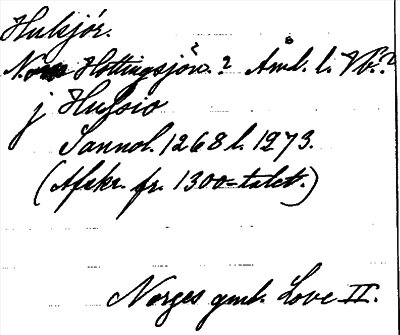 Hulsjör.
Hottingsjön? Åmd. l. Vb.?
j Hulsio
Sannol. 1268 l. 1273.
(Afskr. fr. 1300-talet.)
Norges gml. Love II.